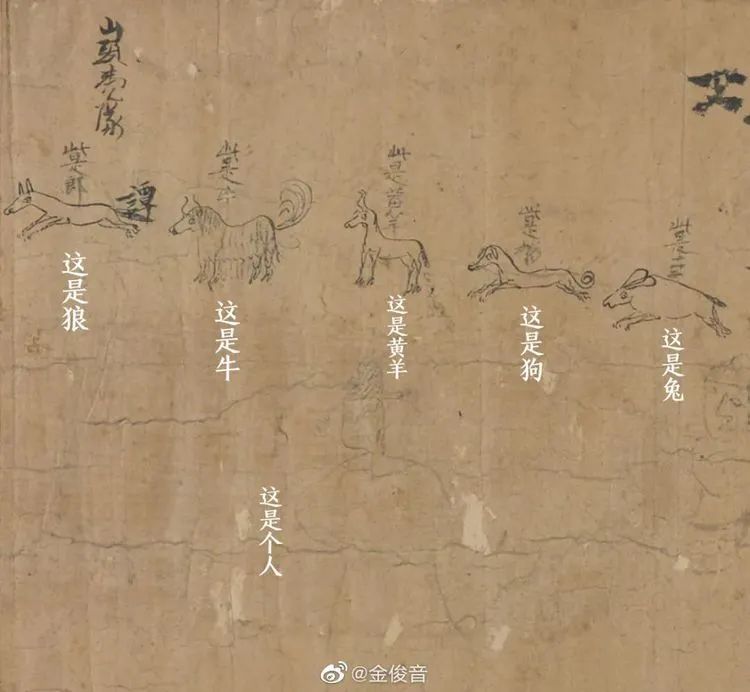 山頭
此是郎
譚
此是牛
此是黄羊
此是狗
此是
这是狼
这是牛
这是黄羊
这是狗
这是兔
这是个人
@金俊音